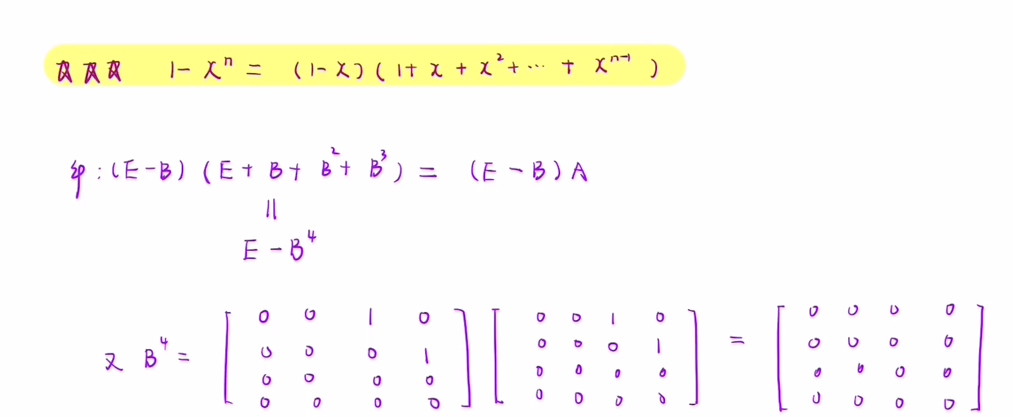 ☆☆☆ 1-xⁿ = (1-x)(1+x+x²+⋯+xⁿ⁻¹)
即:(E-B)(E+B+B²+B³) = (E-B)A
||
E-B⁴
又 B⁴ = [0 0 1 0; 0 0 0 1; 0 0 0 0; 0 0 0 0] [0 0 1 0; 0 0 0 1; 0 0 0 0; 0 0 0 0] = [0 0 0 0; 0 0 0 0; 0 0 0 0; 0 0 0 0]